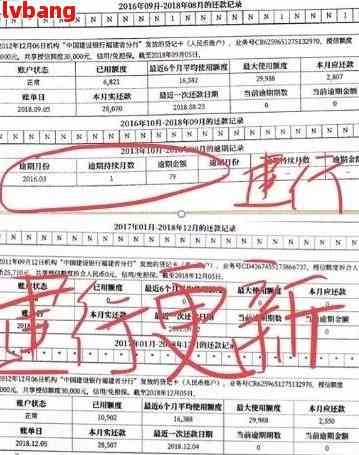 lvbang
2016年09月-2018年08月的还款记录
N N N N N N N N N N
2012年12月06日机构“中国建设银行福建省分行”发放的贷记卡（人民币账户），业务号CB6259651275132970，授信额
000元，共享授信额度30,000元，信用/免担保。截至2018年09月05日，
账户状态 已用额度 最近6个月平均使用额度 最大使用额度 本月应还款
正常 6,823 16,382 29,988 2,807
账单日 本月实还款 最近一次还款日期 当前逾期期数 当前逾期金额
2018.09.05 28,670 2018.08.23 0 0
2016年10月-2018年09月的还款记录
2013年10月 的逾期记录
逾期月份 逾期持续月数 逾期金额 逾期月份 持续月数 逾期金额
2016.03 1 79
建行
2017年01月-2018年12月的还款记录
2011年09月12日机构“中国建设银行福建省分行”发放的贷记卡
信用/免担保。截至2018年12月05日，
已用额度 最近6个月平均使用额度 最大使用额度 本月应还款
建行更新
2012年12月06日机构“中国建设银行福建省分行”发放的贷记卡（人民币账户），业务号CB6259651275132970，授信额
000元，共享授信额度30,000元，信用/免担保。截至2018年12月05日，
账户状态 已用额度 最近6个月平均使用额度 最大使用额度 本月应还款
正常 10,902 16,388 29,988 2,550
账单日 本月实还款 最近一次还款日期 当前逾期期数 当前逾期金额
2018.12.05 28,507 2018.12.04 0 0